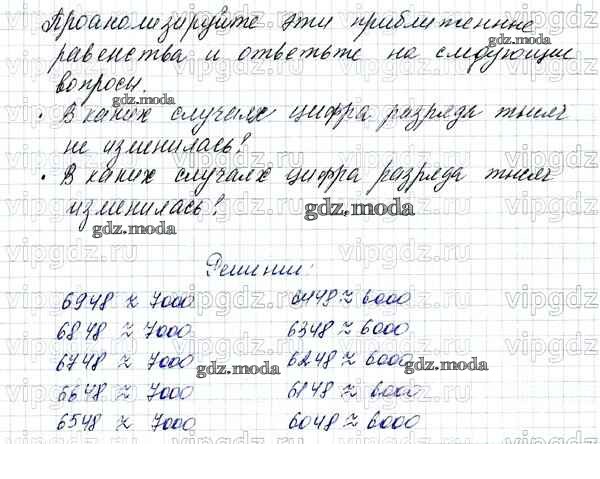 Проанализируйте эти приближенные
равенства и ответьте на следующие
вопросы.
gdz.moda
• В каких случаях цифра разряда тысяч
gdz.moda
не изменилась?
gdz.moda
• В каких случаях цифра разряда тысяч
изменилась?
gdz.moda
gdz.moda
vipgdz.ru
Решение:
6948 ≈ 7000 6448 ≈ 6000
6848 ≈ 7000 6348 ≈ 6000
6748 ≈ 7000 6248 ≈ 6000
gdz.moda gdz.moda
6648 ≈ 7000 6148 ≈ 6000
gdz.moda
6548 ≈ 7000 6048 ≈ 6000
gdz.moda